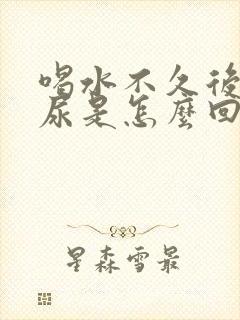 喝水不久後
尿是怎麼回
星森雪最